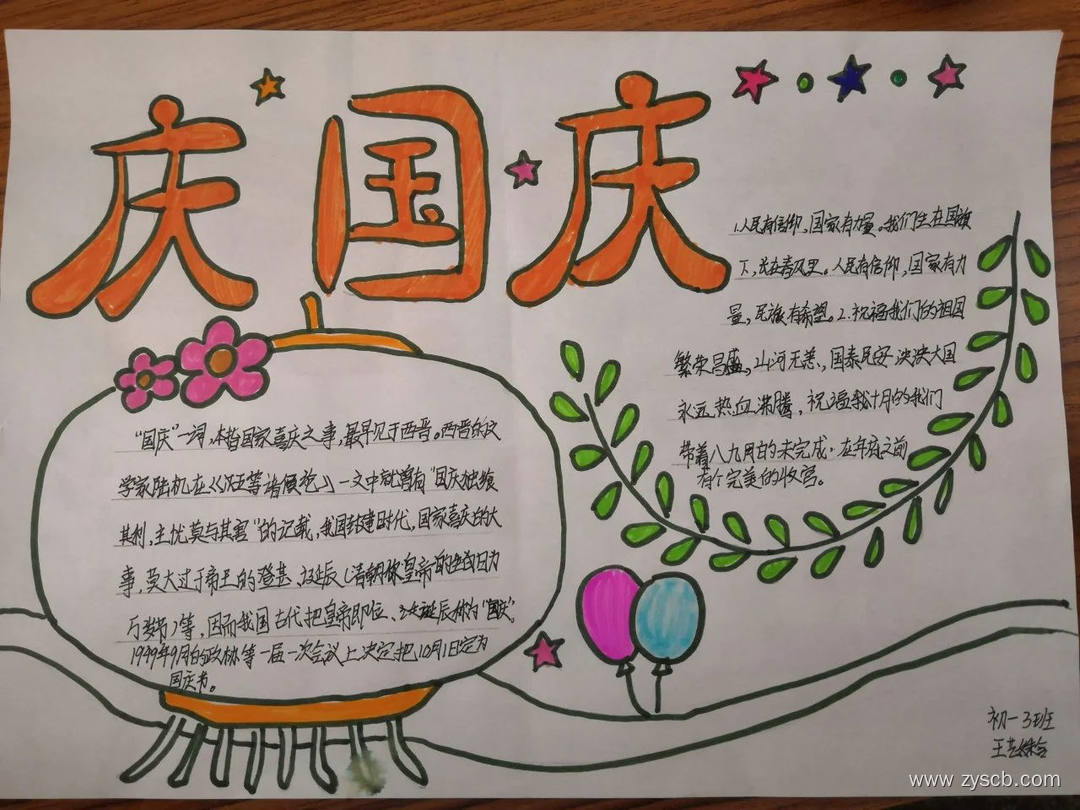 庆国庆
1.人民有信仰,国家有力量。我们生在国旗
下,长在春风里。人民有信仰,国家有力
量,民族有希望。2.祝福我们的祖国
繁荣昌盛,山河无恙,国泰民安 泱泱大国
永远热血沸腾,祝福我十月的我们
带着八九月的未完成·在年底之前
有个完美的收官。
“国庆”一词,本指国家喜庆之事,最早见于西晋。西晋的文
学家陆机在《五等诸侯论》一文中就曾有“国庆独飨
其利,主忧莫与其害”的记载,我国封建时代,国家喜庆的大
事,莫大过于帝王的登基、诞辰(清朝称皇帝的生日为
万岁节)等,因而我国古代把皇帝即位、诞辰称为“国庆”。
1949年9月的政协等一届一次会议上决定把10月1日定为
国庆节。
初一3班
www.zyscb.com